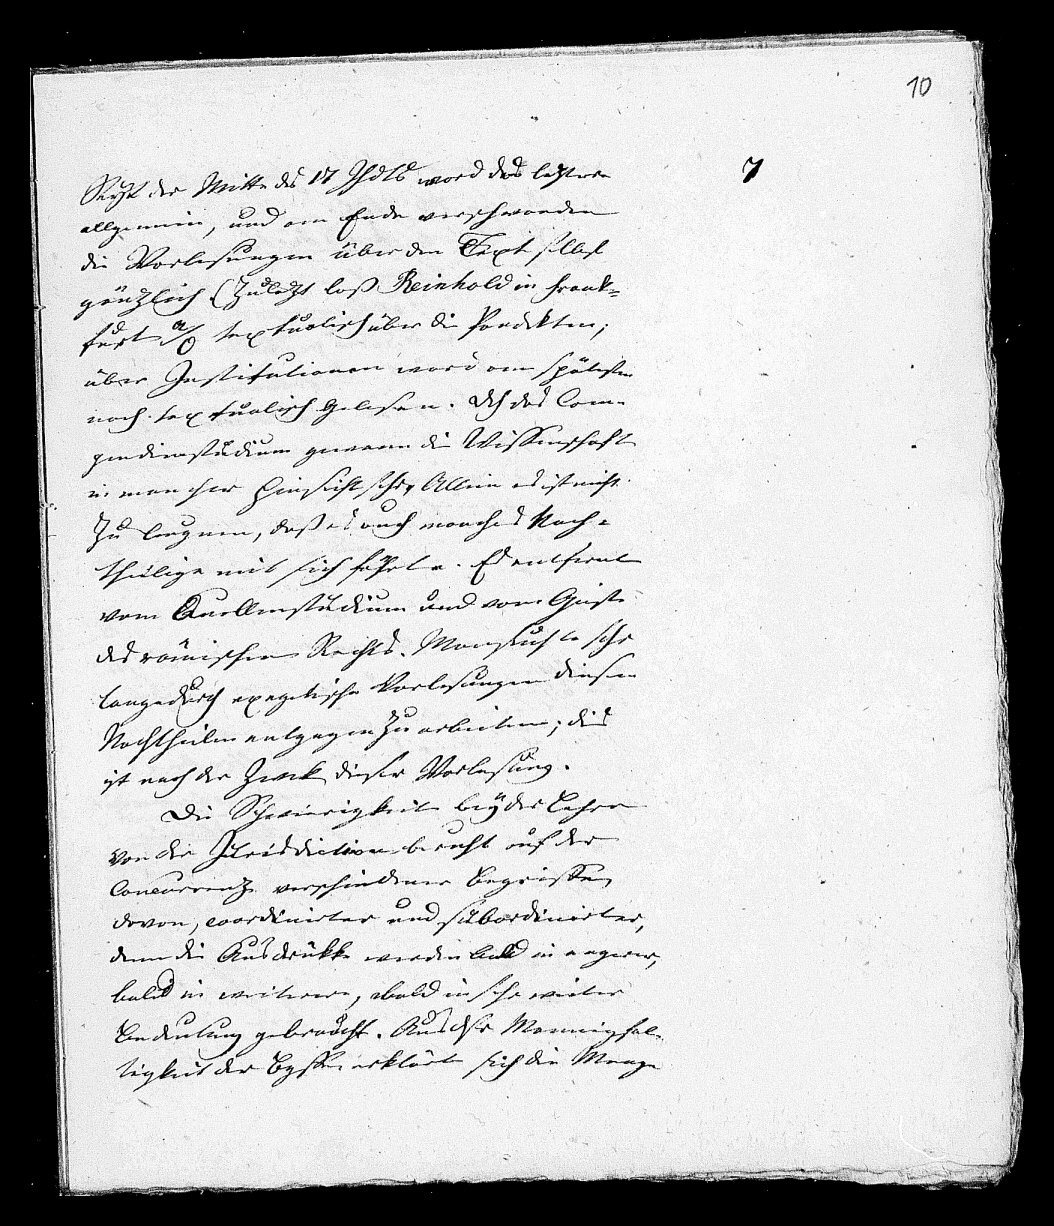 10
7
Seit der Mitte des 17 Jhdts ward das letztere
allgemein, und am Ende verschwanden
die Vorlesungen über den Text selbst
gänzlich (Zuletzt laß Reinhold in Frank=
furt a/O textualisch über die Pandekten;
über Institutionen ward am spätesten
noch textualisch gelesen. Dch das Com-
pendienstudium gewann die Wissenschaft
in mancher Hinsicht sehr, Allein es ist nicht
zu leugnen, daß es auch manches Nach=
theilige mit sich führte. Es entfernte
vom Quellenstudium und vom Geiste
des römischen Rechts. Man suchte sehr
lange durch exegetische Vorlesungen diesen
Nachtheilen entgegen zu arbeiten; dies
ist auch der Zweck dieser Vorlesung.
Die Schwierigkeit bey der Lehre
von der Jurisdiction beruht auf der
Concurrenz verschiedener Begriffe
davon, coordinirter und subordinirter,
denn die Ausdrükke werden bald in engerer,
bald in weiterer, bald in sehr weiter
Bedeutung gebraucht. Aus dsr Mannigfal-
tigkeit der Bgffe erklärt sich die Menge